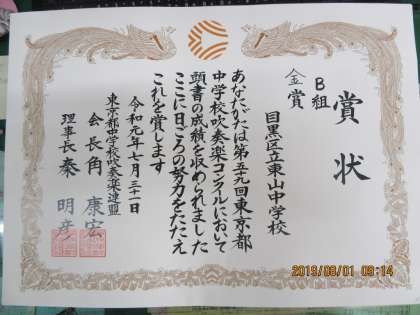 賞状
B組
金賞
目黒区立東山中学校
あなたがたは第五十九回東京都
中学校吹奏楽コンクールにおいて
頭書の成績を収められました
ここに日ごろの努力をたたえ
これを賞します
令和元年七月三十一日
東京都中学校吹奏楽連盟
会長 角 康宏
理事長 秦 明彦
2019/08/01 09:14